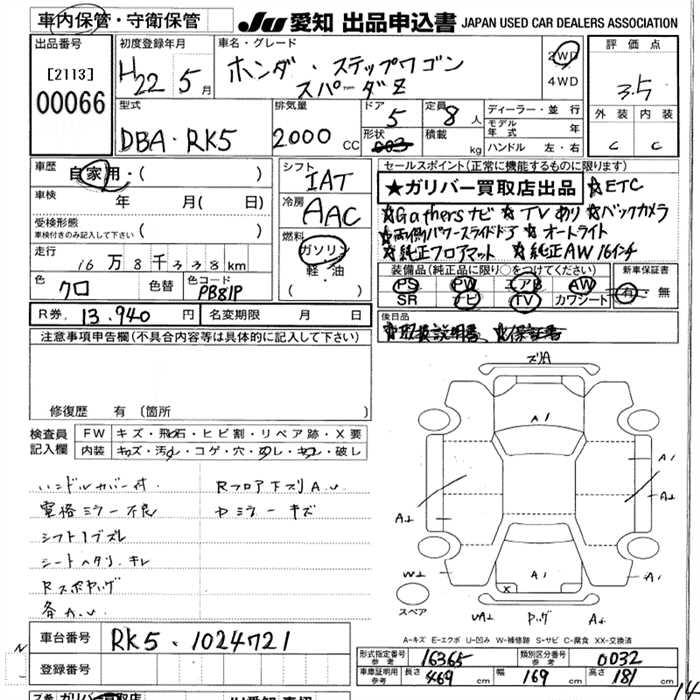 車内保管・守衛保管
JU 愛知 出品申込書 JAPAN USED CAR DEALERS ASSOCIATION
出品番号
[2113]
00066
初度登録年月
H22 5月
車名・グレード
ホンダ・ステップワゴン
スパーダZ
2WD
4WD
評価点
3.5
外装 内装
C C
型式
DBA-RK5
排気量
2000 CC
ドア
5
形状
003
定員
8人
積載
kg
ディーラー・並行
モデル年式 年
ハンドル 左・右
車歴
自家用・( )
車検
年 月( 日)
受検形態
車検付きのみ記入して下さい ( )
走行
16万8千338km
色
クロ
色替
色コード
PB81P
シフト
IAT
冷房
AAC
燃料
ガソリン
軽・油
( )
セールスポイント(正常に機能するものに限ります)
★ガリバー買取店出品 ☆ETC
☆Gathersナビ ☆TVあり ☆バックカメラ
☆両側パワースライドドア ☆オートライト
☆純正フロアマット ☆純正AW16インチ
装備品(純正品に限り○をつけてください)
PS PW エアB AW
SR ナビ TV カワシート
新車保証書
有・無
後日品
☆取扱説明書 ☆保証書
R券 13,940円
名変期限 月 日
注意事項申告欄(不具合内容等は具体的に記入して下さい)
修復歴 有 [箇所 ]
検査員記入欄
FW キズ・飛石・ヒビ割・リペア跡・X要
内装 キズ・汚レ・コゲ・穴・スレ・キレ・破レ
ハンドルカバー付 Rフロア下ズリA.U
室格ミラー不良
シフトノブズレ
シートヘタリ、キレ
ズリA
A1
A1
A1
A1
A2
A2
W2
X
UA2
A2
スペア
A-キズ E-エクボ U-凹み W-補修跡 S-サビ C-腐食 XX-交換済
車台番号
RK5-1024721
登録番号
形式指定番号 参考
16365
類別区分番号 参考
0032
車庫証明用 参考
長さ 469 cm
幅 169 cm
高さ 181 cm